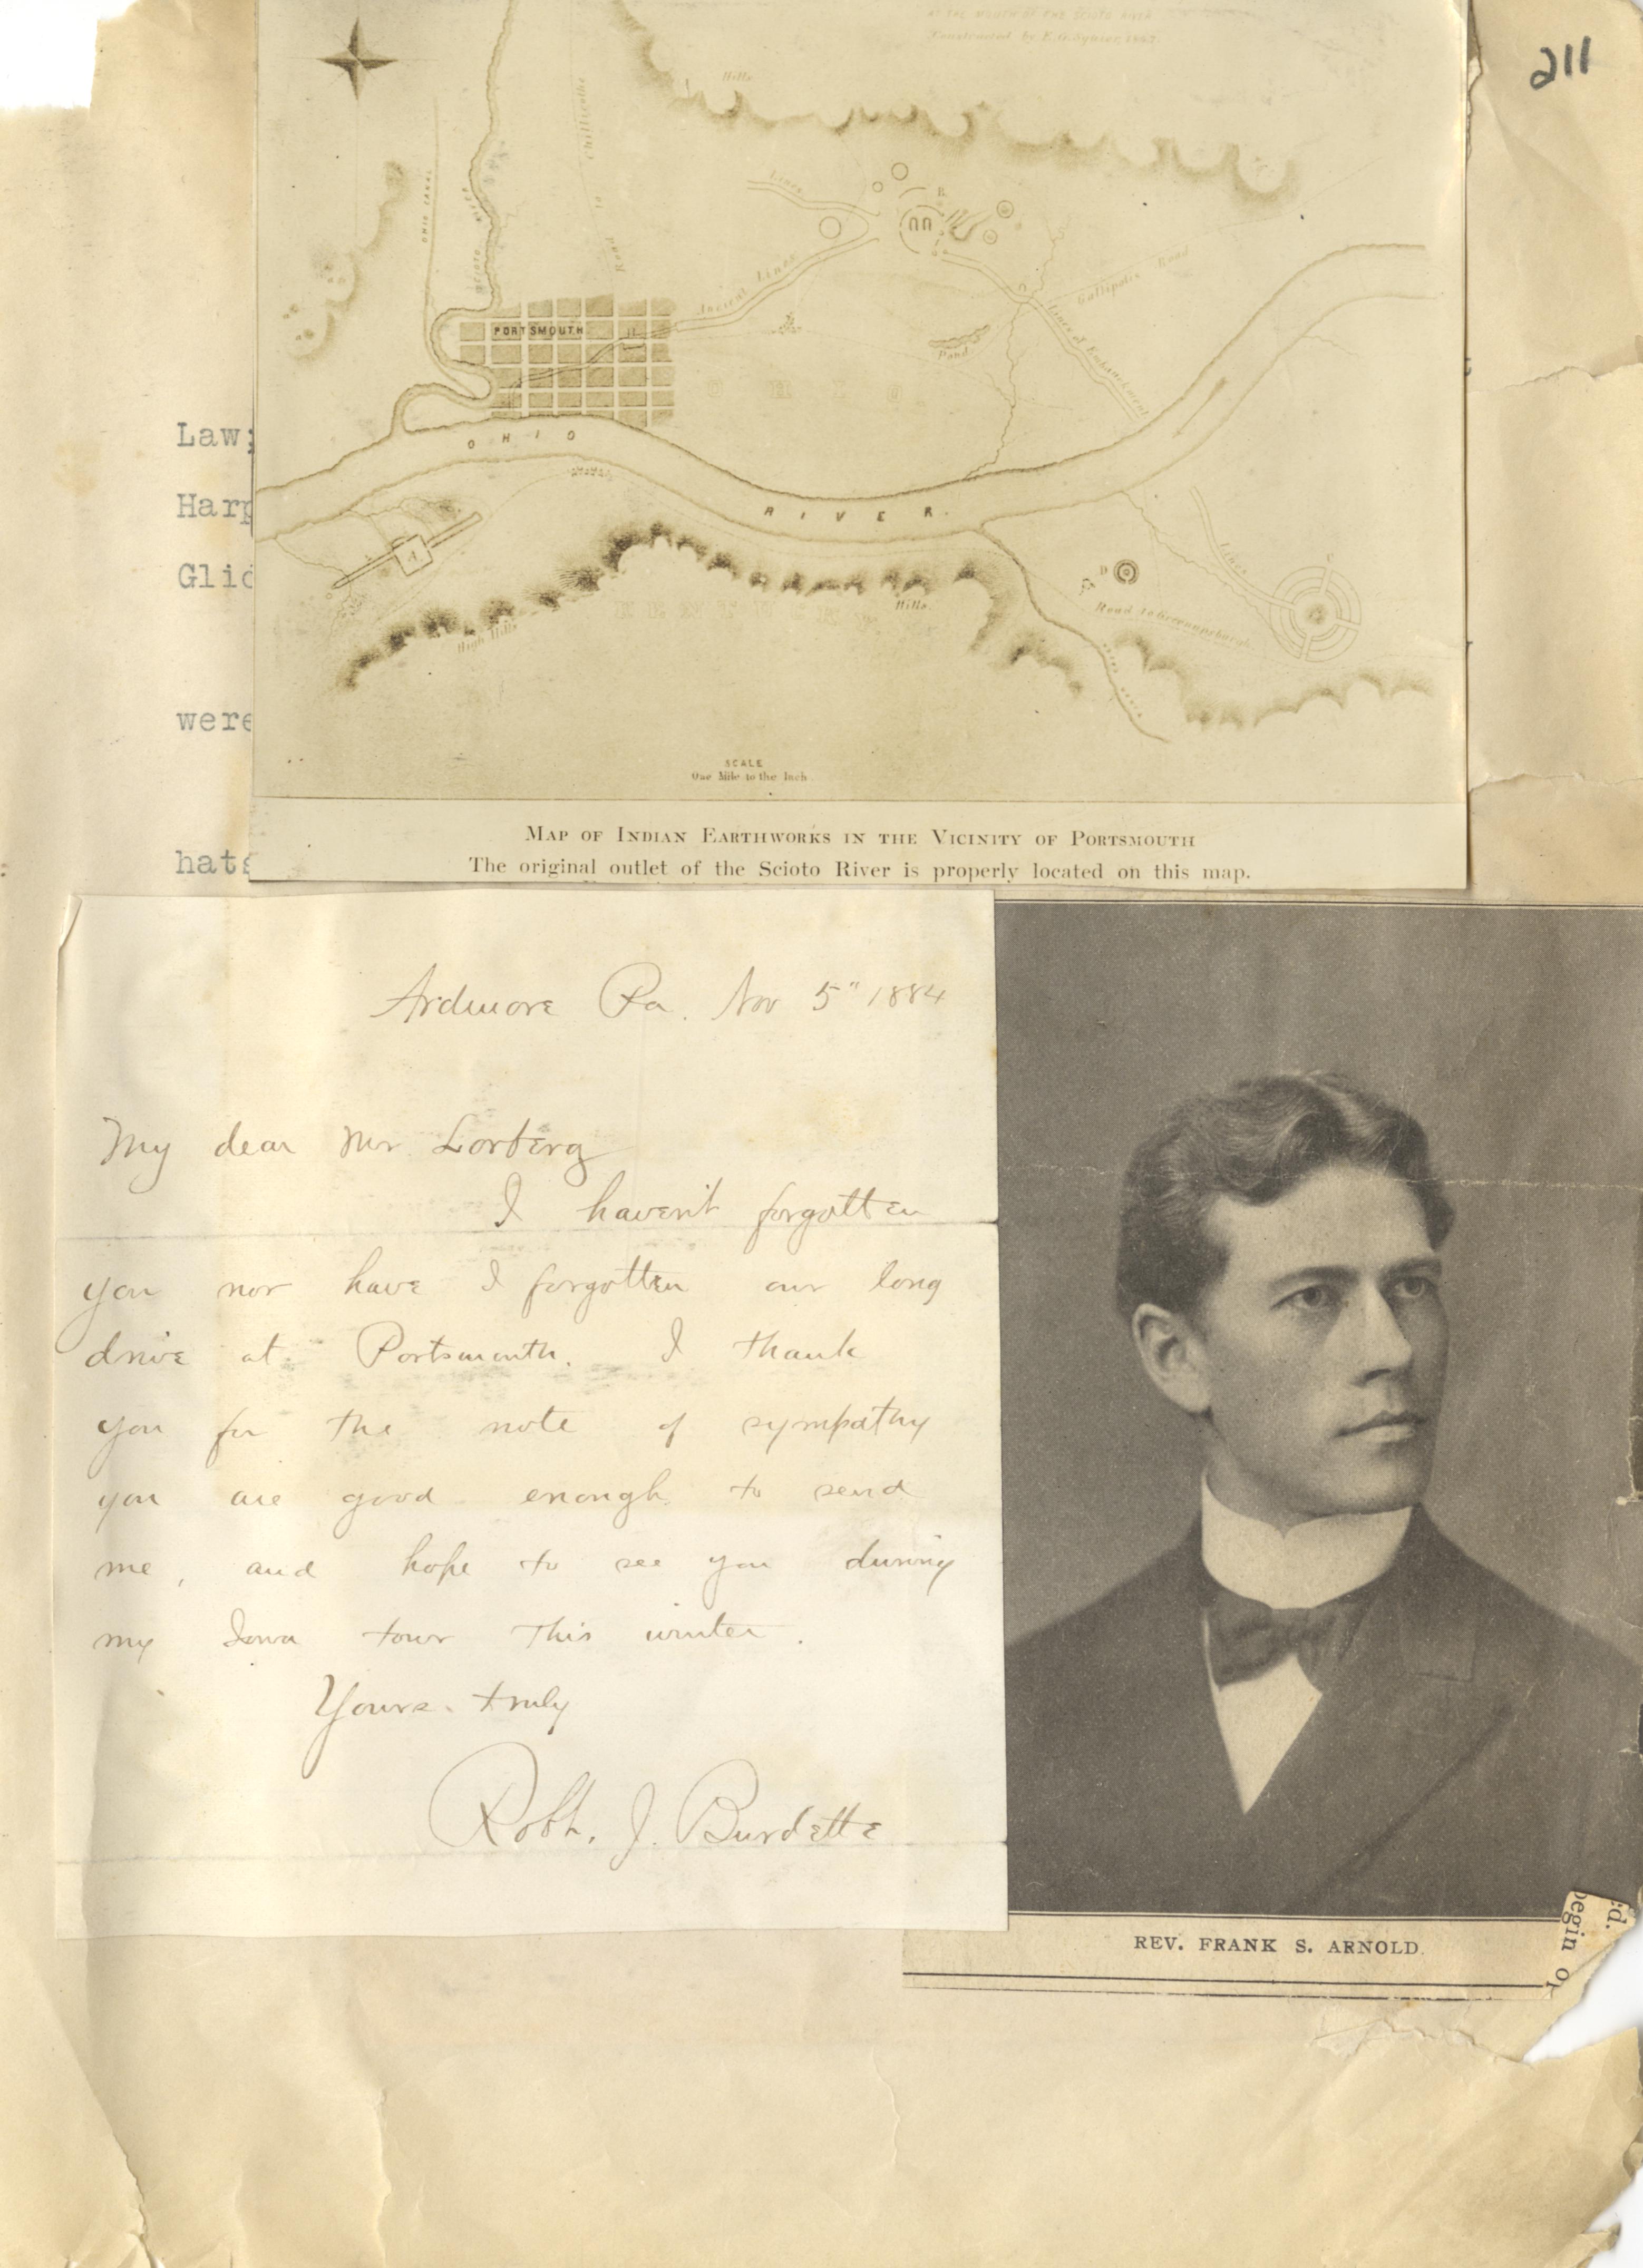 211
AT THE MOUTH OF THE SCIOTO RIVER
Constructed by E.G.Squier, 1847.
Hills
OHIO CANAL
SCIOTO RIVER
Road to Chillicothe
Lines
B
Ancient Lines
Gallipolis Road
Lines of Embankment
PORTSMOUTH
Pond
OHIO.
OHIO
RIVER.
A
D
C
Lines
Road to Greenupsburgh
KENTUCKY
Hills.
High Hills
SCALE
One Mile to the Inch
MAP OF INDIAN EARTHWORKS IN THE VICINITY OF PORTSMOUTH
The original outlet of the Scioto River is properly located on this map.
Law;
Harp
Glid
were
hats
Ardmore Pa. Nov 5" 1884
My dear Mr. Lorberg
I haven't forgotten
you nor have I forgotten our long
drive at Portsmouth. I thank
you for the note of sympathy
you are good enough to send
me, and hope to see you during
my Iowa tour this winter.
Yours truly
Robt. J. Burdette
REV. FRANK S. ARNOLD.
ed.
begin or